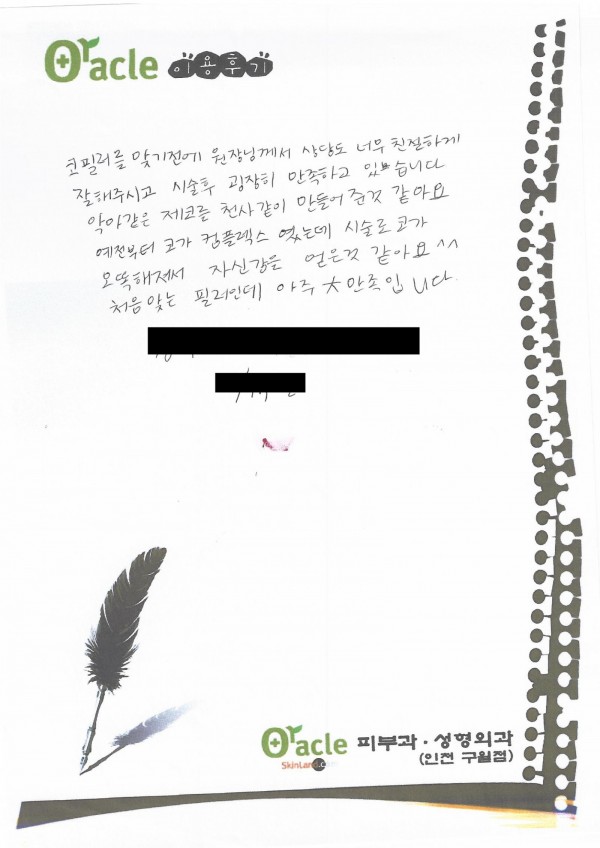 Oracle 이용후기
코필러를 맞기전에 원장님께서 상담도 너무 친절하게
잘해주시고 시술후 굉장히 만족하고 있습니다
악마같은 제코를 천사같이 만들어 준것 같아요
예전부터 코가 컴플렉스 였는데 시술로 코가
오똑해져서 자신감을 얻은것 같아요^^
처음맞는 필러인데 아주 大만족입니다.
Oracle 피부과·성형외과
SkinLand.com (인천 구월점)